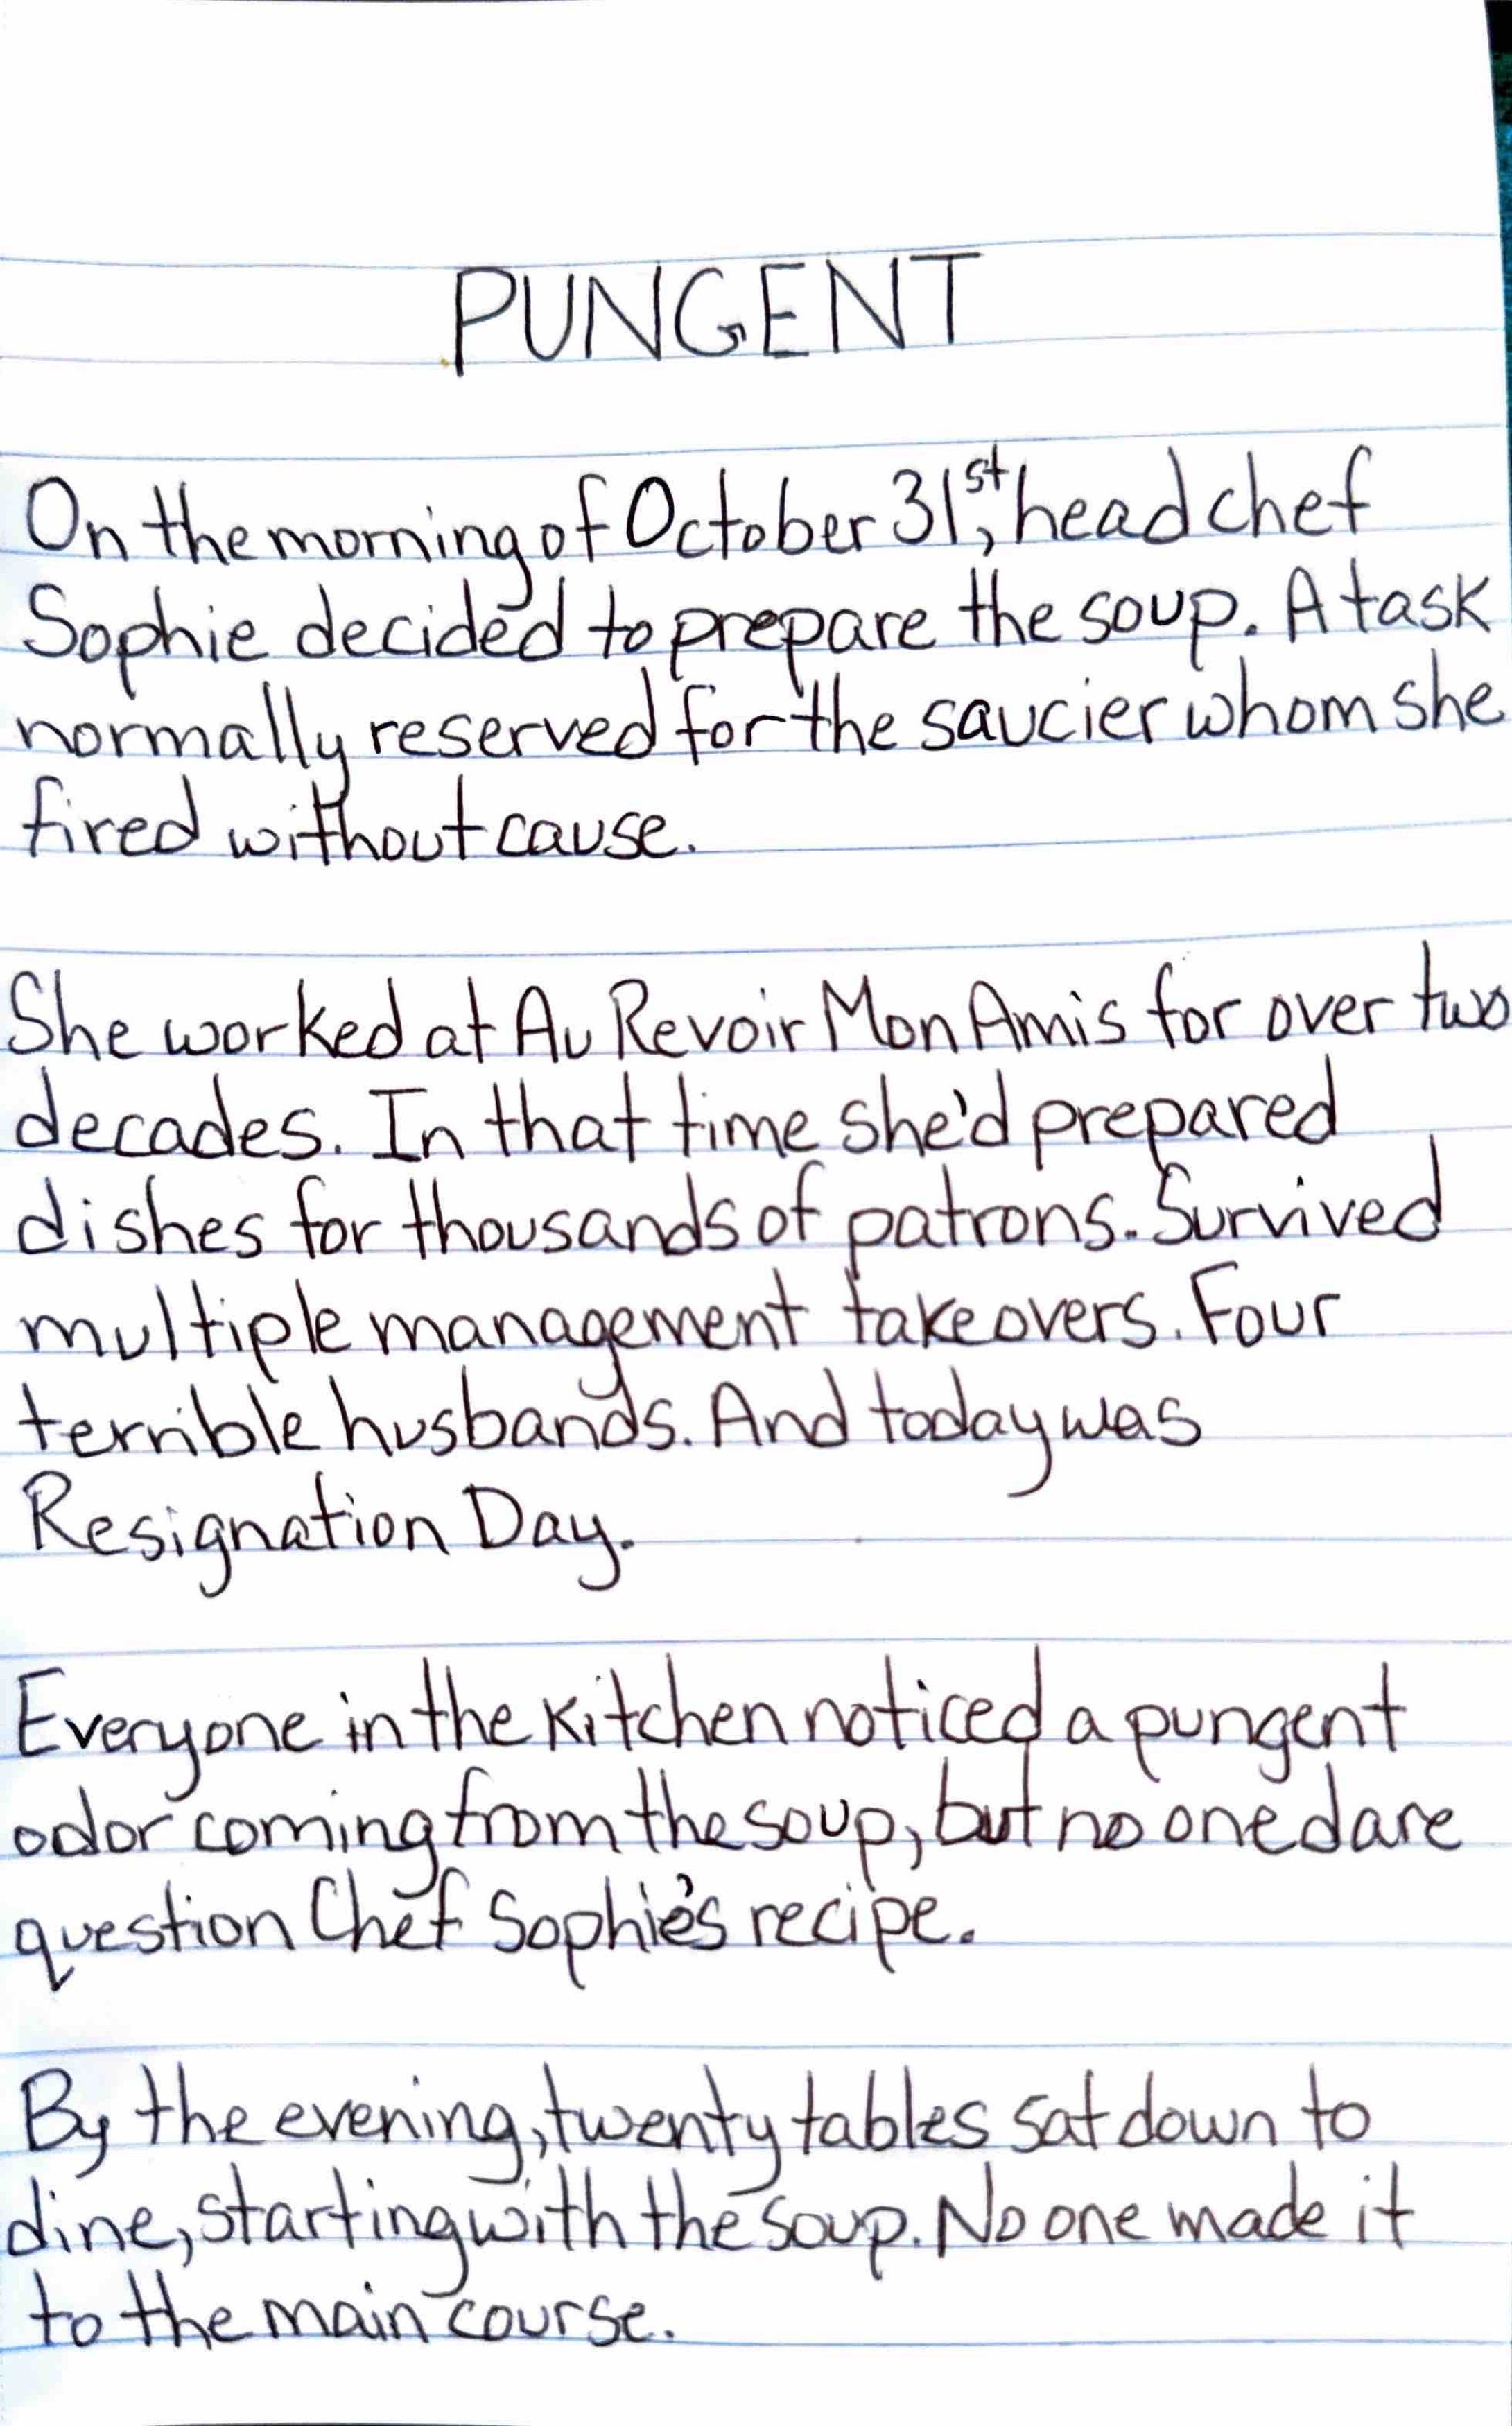 PUNGENT
On the morning of October 31st, head chef
Sophie decided to prepare the soup. A task
normally reserved for the saucier whom she
fired without cause.
She worked at Au Revoir Mon Amis for over two
decades. In that time she'd prepared
dishes for thousands of patrons. Survived
multiple management takeovers. Four
terrible husbands. And today was
Resignation Day.
Everyone in the kitchen noticed a pungent
odor coming from the soup, but no one dare
question Chef Sophie's recipe.
By the evening, twenty tables sat down to
dine, starting with the soup. No one made it
to the main course.